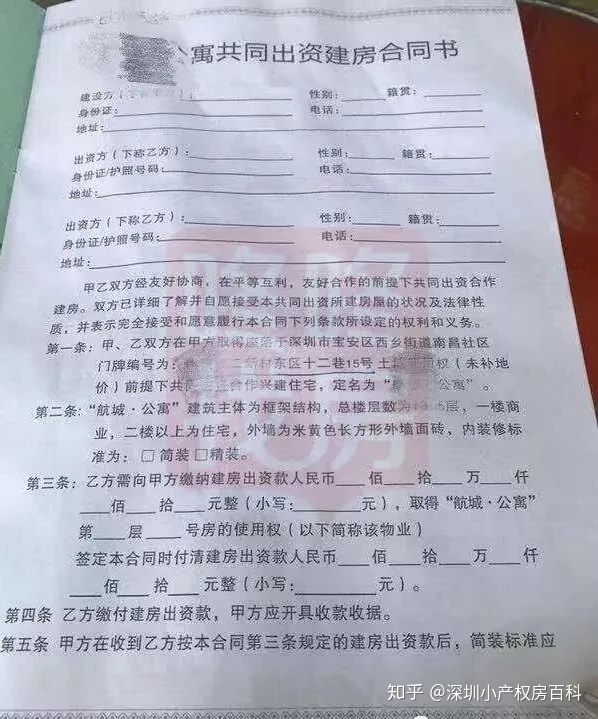 公寓共同出资建房合同书
建设方（ ）：________ 性别：____ 籍贯：____
身份证：________ 电话：________
地址：________
出资方（下称乙方）：________ 性别：____ 籍贯：____
身份证/护照号码：________ 电话：________
地址：________
出资方（下称乙方）：________ 性别：____ 籍贯：____
身份证/护照号码：________ 电话：________
地址：________
甲乙双方经友好协商，在平等互利，友好合作的前提下共同出资合作
建房。双方已详细了解并自愿接受本共同出资所建房屋的状况及法律性
质，并表示完全接受和愿意履行本合同下列条款所设定的权利和义务。
第一条：甲、乙双方在甲方取得座落于深圳市宝安区西乡街道南昌社区
门牌编号为： 新村东区十二巷15号 土 权（未补地
价）前提下共 合作兴建住宅，定名为“ 公寓”。
第二条：“航城·公寓”建筑主体为框架结构，总楼层数为 层，一楼商
业，二楼以上为住宅，外墙为米黄色长方形外墙面砖，内装修标
准为：□简装□精装。
第三条：乙方需向甲方缴纳建房出资款人民币___佰___拾___万___仟
___佰___拾___元整（小写：________元），取得“航城·公寓”
第___层____号房的使用权（以下简称该物业）
签定本合同时付清建房出资款人民币___佰___拾___万___仟
___佰___拾___元整（小写：________元）。
第四条 乙方缴付建房出资款，甲方应开具收款收据。
第五条 甲方在收到乙方按本合同第三条规定的建房出资款后，简装标准应
知乎 @深圳小产权房百科